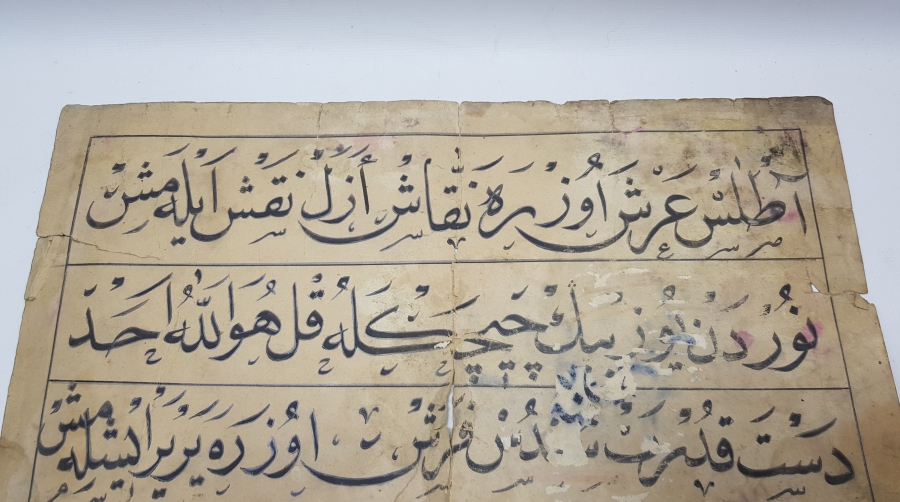 آطلس عرش اوزره نقاش ازل نقش ایله مش
نوردن یوز بیڭ چیچكله قل هو الله احد
دست قدرت فرش اوزره یر یر ایشله مش